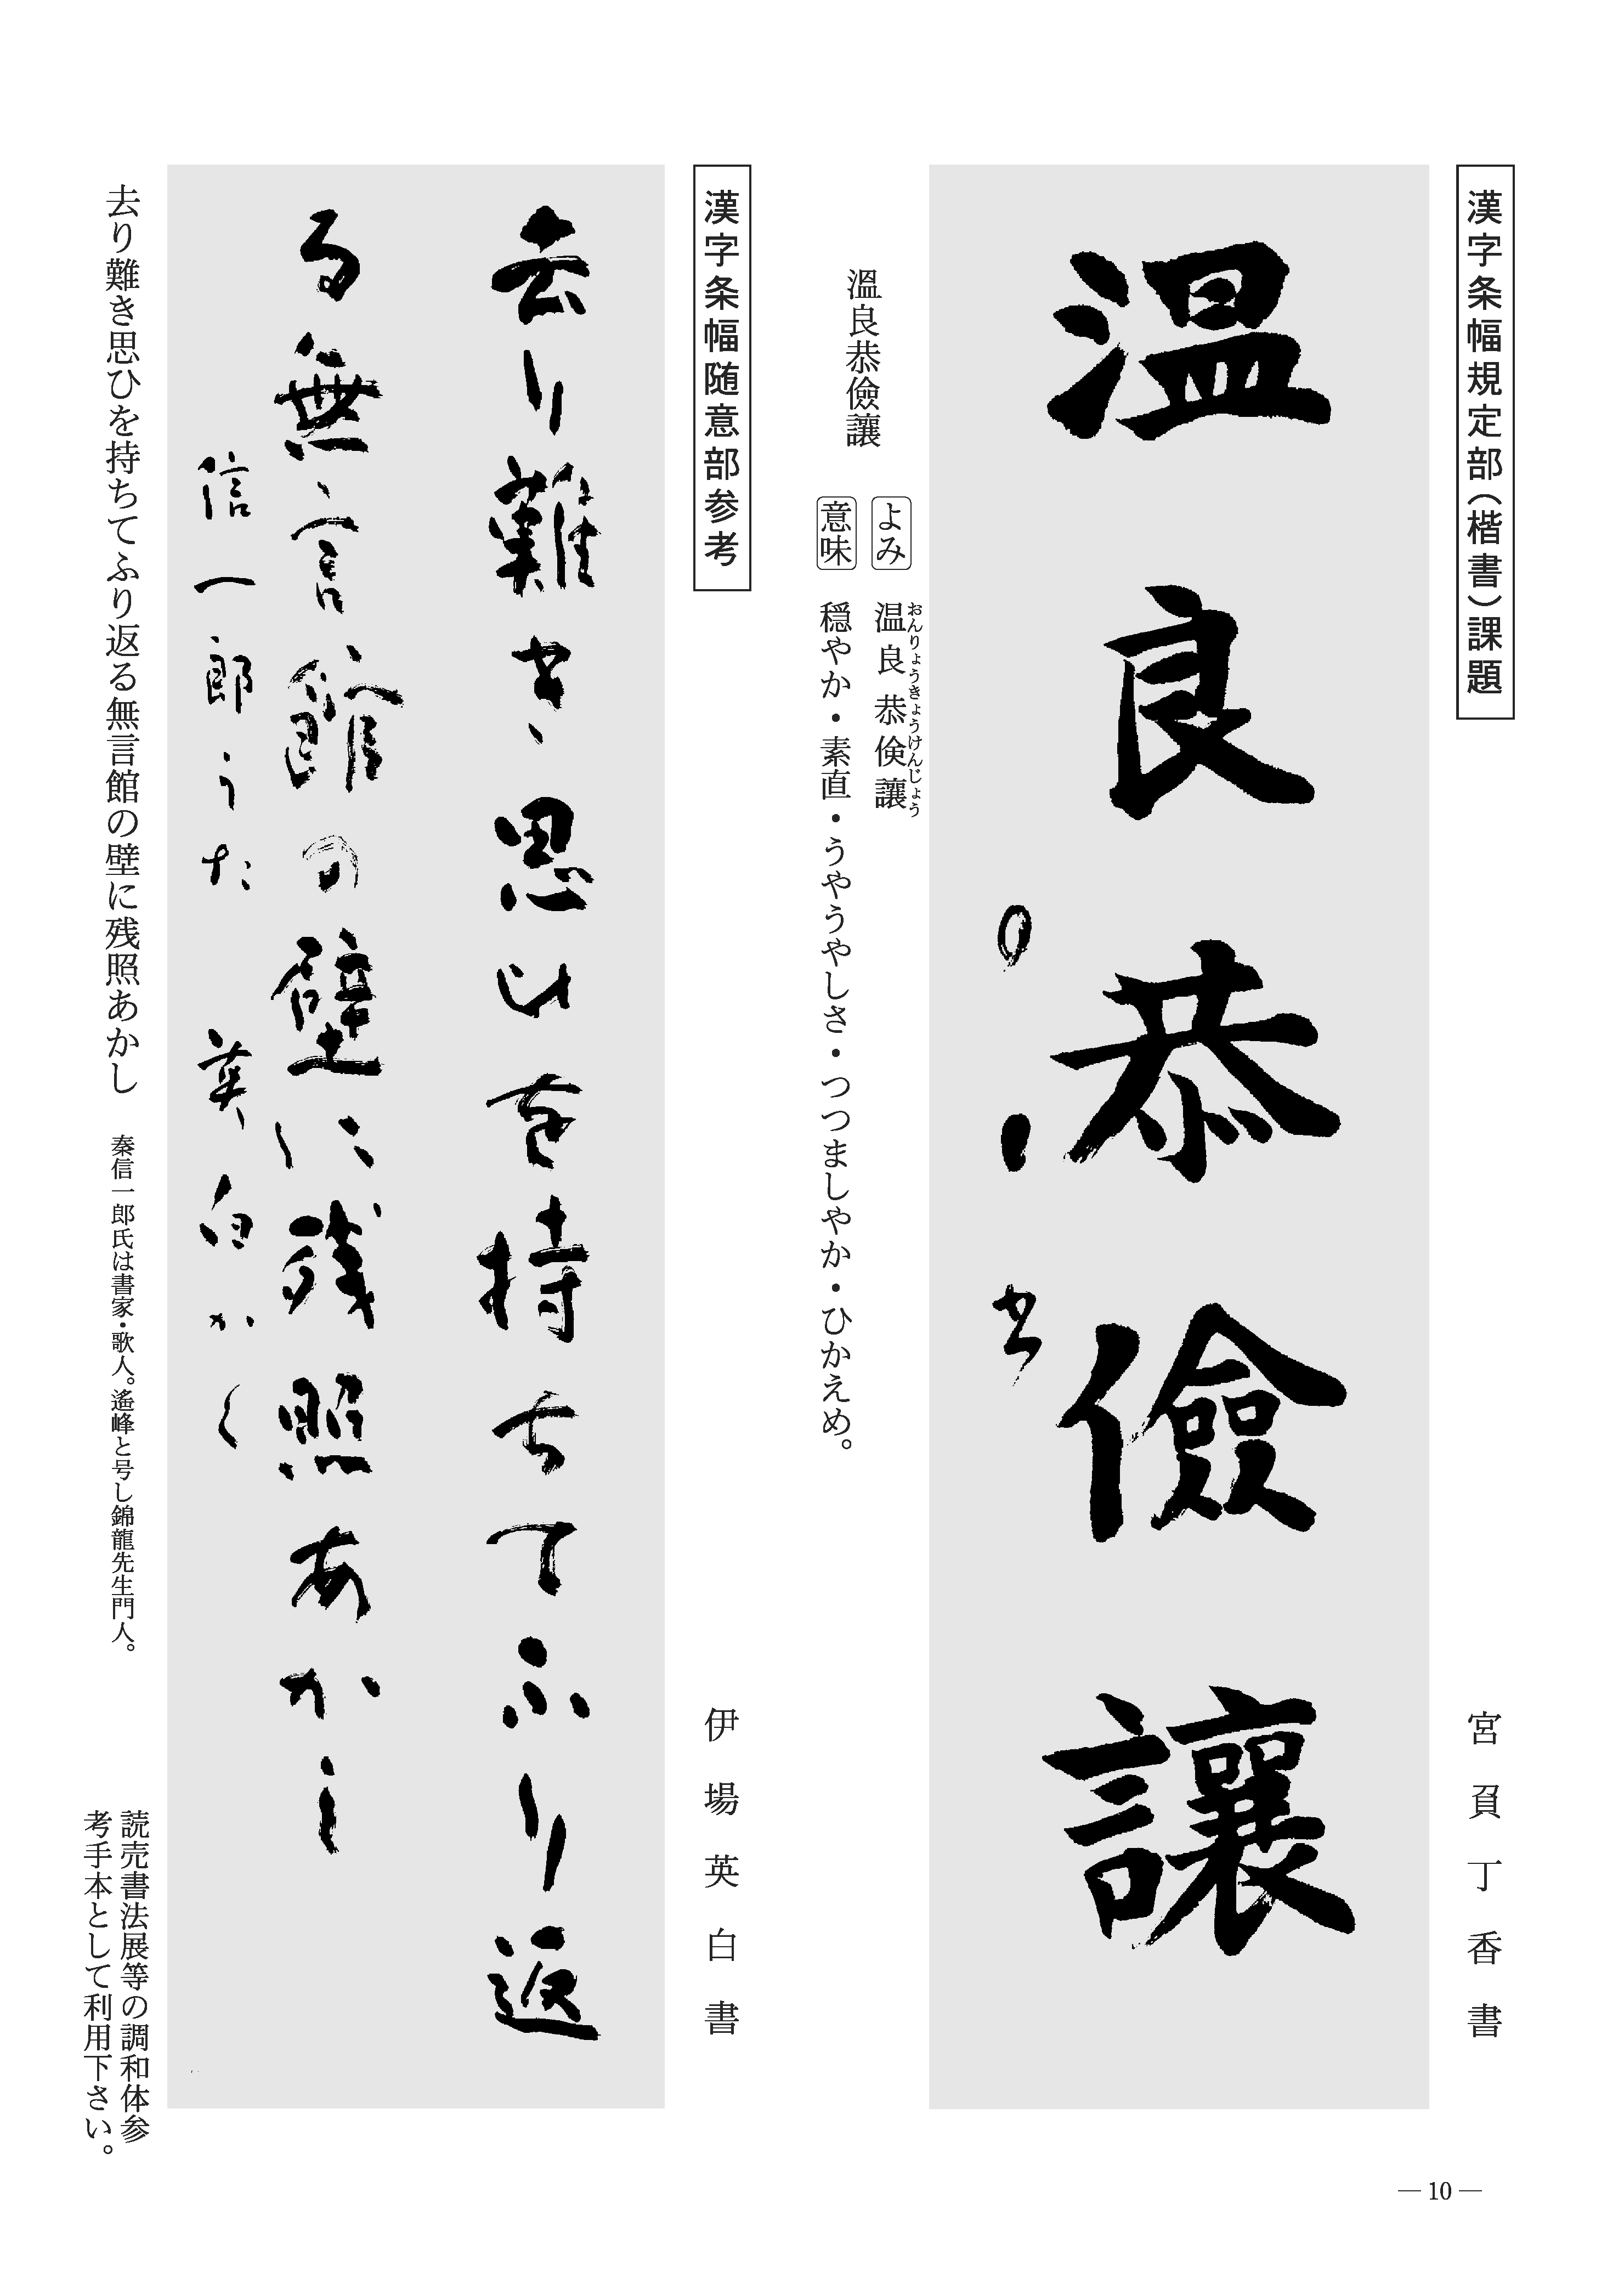 漢字条幅規定部（楷書）課題
宮貟丁香書
溫良恭儉讓
溫良恭儉讓
よみ
温良恭倹讓
おんりょうきょうけんじょう
意味
穏やか・素直・うやうやしさ・つつましやか・ひかえめ。
漢字条幅随意部参考
伊場英白書
去り難き思ひを持ちてふり返
る無言館の壁に残照あかし
信一郎うた 英白かく
去り難き思ひを持ちてふり返る無言館の壁に残照あかし
秦信一郎氏は書家・歌人。遙峰と号し錦龍先生門人。
読売書法展等の調和体参
考手本として利用下さい。
— 10 —